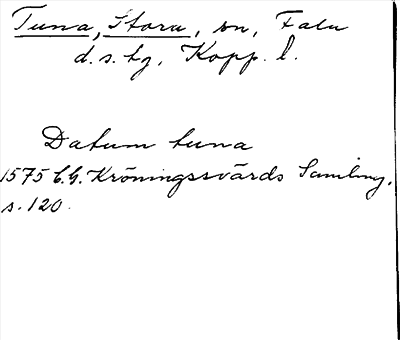 Tuna, Stora, sn, Falu
d.s. tg, Kopp. l.
Datum tuna
1575 C.G. Kröningssvärds Samling,
s. 120.